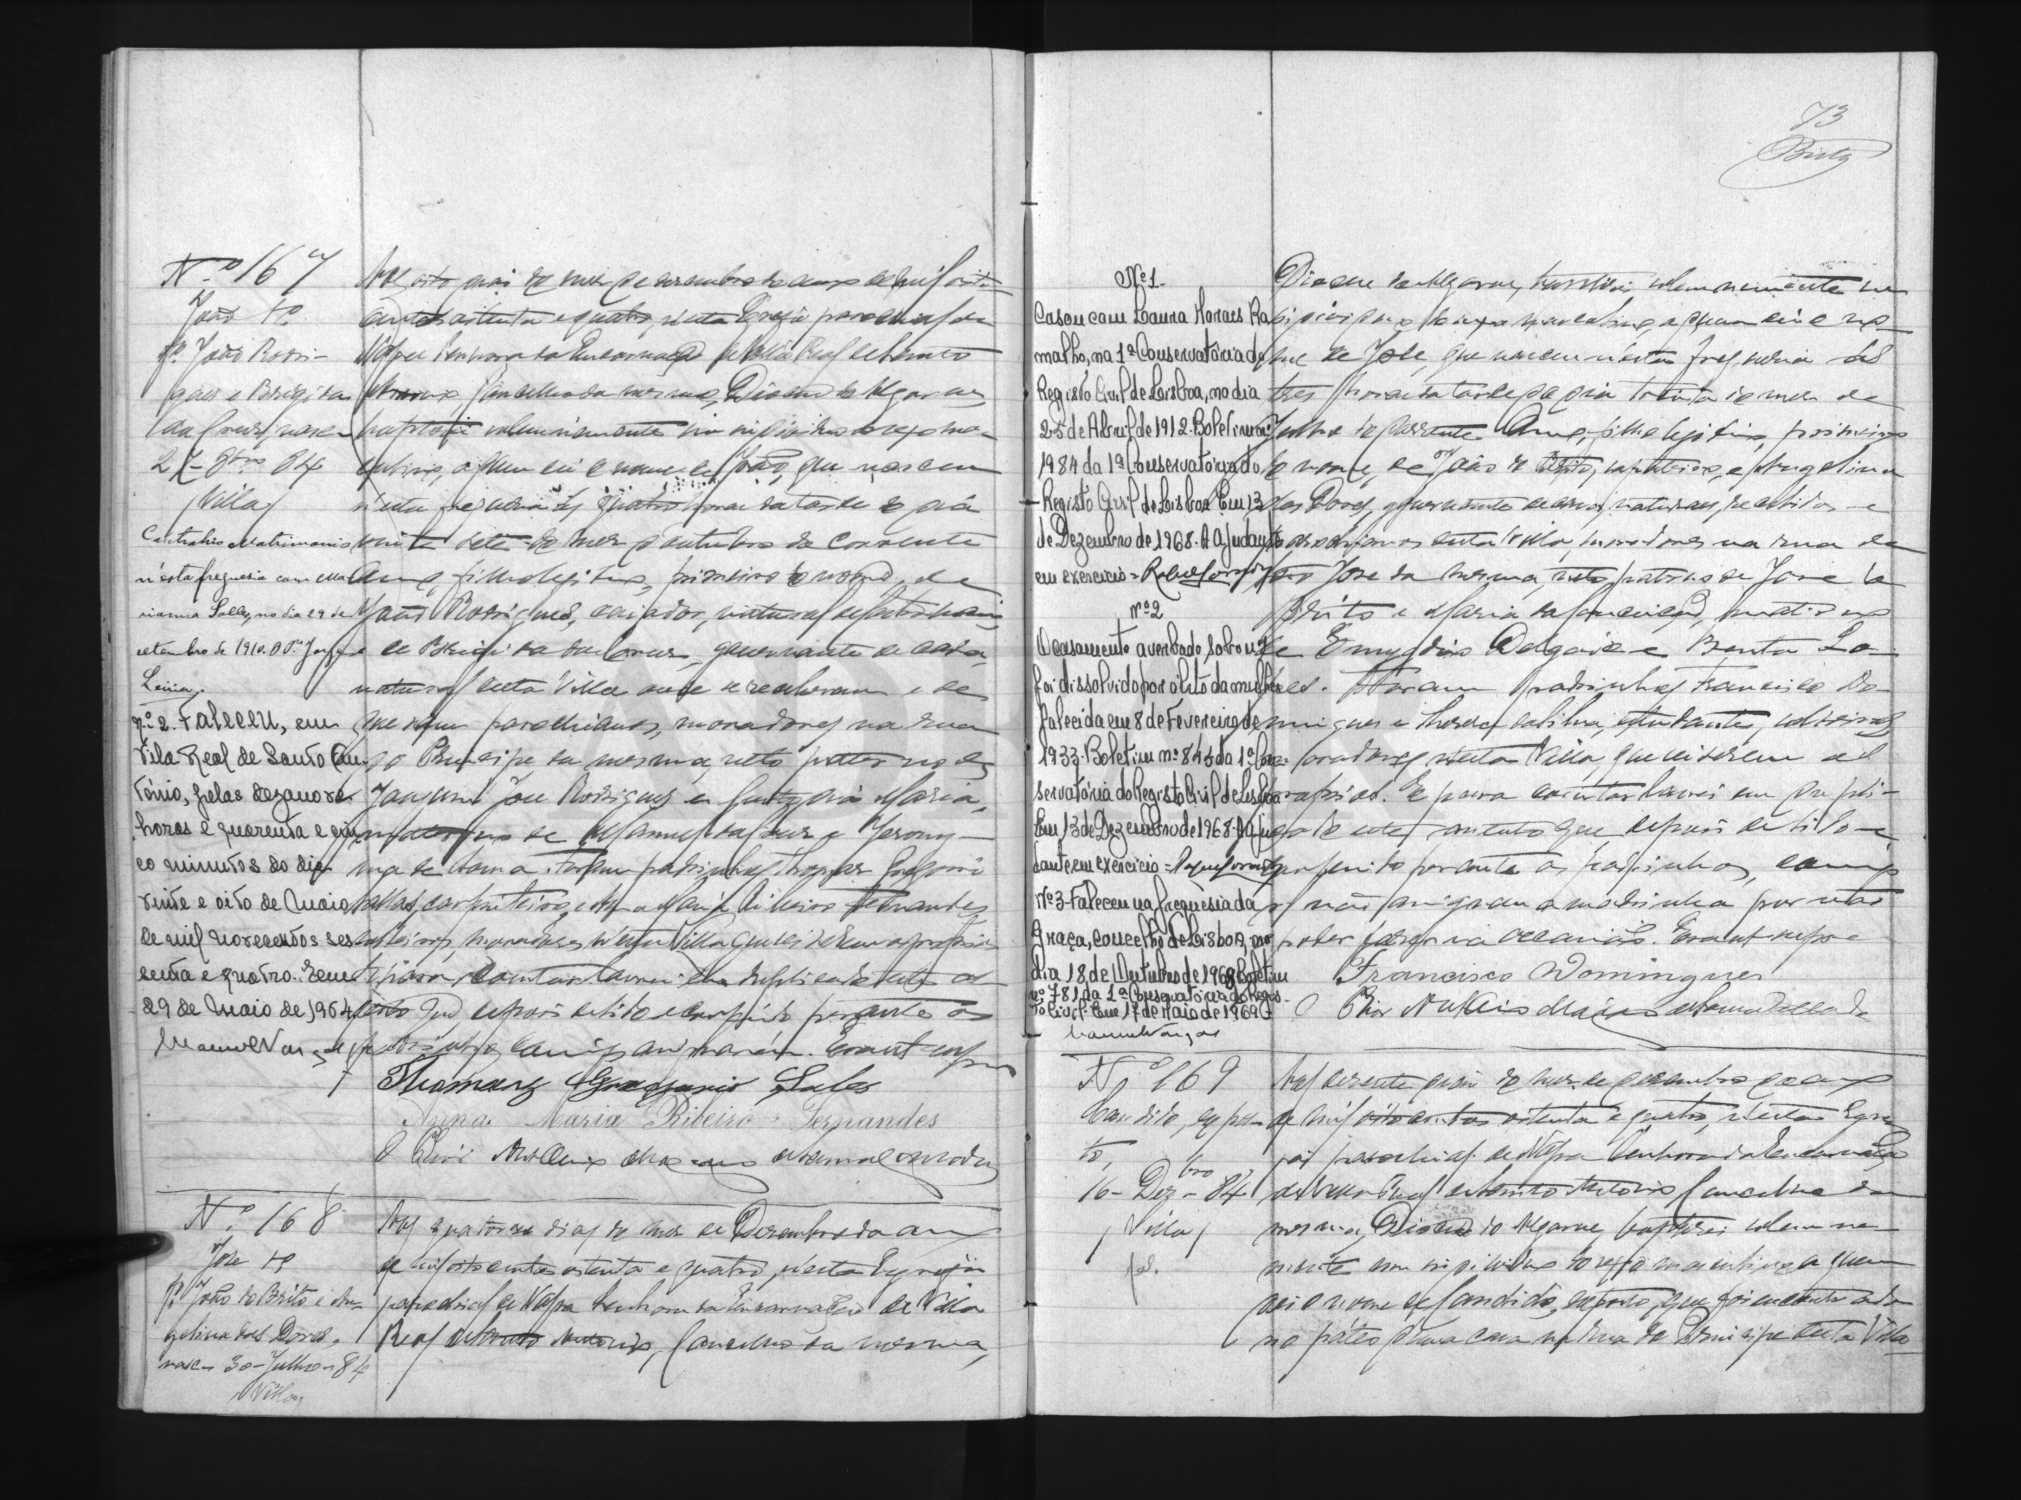 N.º 167
João
f.º João Rodri-
gues e Brigida
da Cruz, nasc.
27-8bro 84
(Villa)
Contrahio Matrimonio
n'esta freguesia com Ma
rianna Salles, no dia 29 de
setembro de 1910. O P.e Jorge
Leiria.
Nº 2. Faleceu, em
Vila Real de Santo An
tónio, pelas dezanove
horas e quarenta e cin
co minutos do dia
vinte e oito de Maio
de mil novecentos ses
senta e quatro. Em
29 de Maio de 1964
Manuel Vargas
Aos oito dias do mez de desembro do anno de mil oito
centos oitenta e quatro, n'esta Egreja parochial de
Nossa Senhora da Encarnação de Villa Real de Santo
Antonio Concelho da mesma, Diocese do Algarve,
baptisei solemnemente um individuo do sexo mas-
culino, a quem dei o nome de João, que nasceu
n'esta freguesia ás quatro horas da tarde do dia
vinte sete do mez d'outubro do corrente
Anno, filho legitimo, primeiro do nome, de
João Rodrigues, caiador, natural de
e de Brigida da Cruz, governante de casa,
natural desta Villa onde se receberam e de
que são parochianos, moradores na rua
do Principe da mesma, neto paterno de
Joaquim José Rodrigues e Maria,
materno de Manuel da Cruz e Jerony-
ma de Foram padrinhos Thomaz Gregorio
Salles, carpinteiro, e Anna Maria Ribeiro Fernandes
solteiros, moradores n'esta Villa que sei serem os proprios.
E para constar lavrei em duplicado este as
sento que depois de lido e conferido perante os
padrinhos, comigo assinaram. Era ut supra
Thomaz Gregorio Sales
Anna Maria Ribeiro Fernandes
O Prior
N.º 168
José
f.º João de Brito e An-
gelina das Dores.
nasc. 30-Julho-84
(Villa)
Aos quatorze dias do mez de Desembro do anno
de mil oitocentos oitenta e quatro, n'esta Egreja
parochial de Nossa Senhora da Encarnação de Villa
Real de Santo Antonio, Concelho da mesma,
73
Brito
Nº 1.
Casou com Laura Moraes Ra
malho, na 1ª Conservatória do
Registo Civil de Lisboa, no dia
25 de Abril de 1912. Boletim nº
1984 da 1ª Conservatória do
Registo Civil de Lisboa. Em 13
de Dezembro de 1968. A Ajudante
em exercício =
nº 2
O casamento averbado sob o nº 1
foi dissolvido por óbito da mulher
falecida em 8 de Fevereiro de
1933. Boletim nº 845 da 1ª Con-
servatória do Registo Civil de Lisboa
Em 13 de Dezembro de 1968. A Aju
dante em exercício =
Nº 3. Faleceu na freguesia da
Graça, concelho de Lisboa, no
dia 18 de Outubro de 1968. Boletim
nº 781 da 1ª Conservatória do Regis-
to Civil. Em 17 de Maio de 1969
Manuel Vargas
Diocese do Algarve, baptisei solemnemente um
individuo do sexo masculino, a quem dei o no-
me de José, que nasceu n'esta freguesia ás
tres horas da tarde do dia trinta do mez de
Julho do corrente Anno, filho legitimo, primeiro
do nome, de João de Brito, e Angelina
das Dores, governante de casa, naturaes, recebidos e
parochianos desta Villa, moradores na rua de
São José da mesma, neto paterno de José de
Brito e Maria da Conceição, materno
de Emygdio Delgado e Benta Lo-
pes. Foram padrinhos Francisco Do-
mingues e Thereza estudante, solteiros,
moradores n'esta Villa, que sei serem os
proprios. E para constar lavrei em dupli-
cado este assento que depois de lido e
conferido perante os padrinhos, comigo
não assignou a madrinha por não
poder fazer na occasião. Era ut supra
Francisco Domingues
O Prior
N.º 169
Candido, expos-
to,
16-Dez.bro-84
(Villa)
Aos desesete dias do mez de Desembro do anno
de mil oitocentos oitenta e quatro, n'esta Egre
ja parochial de Nossa Senhora da Encarnação
de Villa Real de Santo Antonio Concelho da
mesma, Diocese do Algarve, baptisei solemne-
mente um individuo do sexo masculino a quem
dei o nome de Candido, exposto, que foi encontrado
no páteo d'uma casa na rua do Principe desta Villa